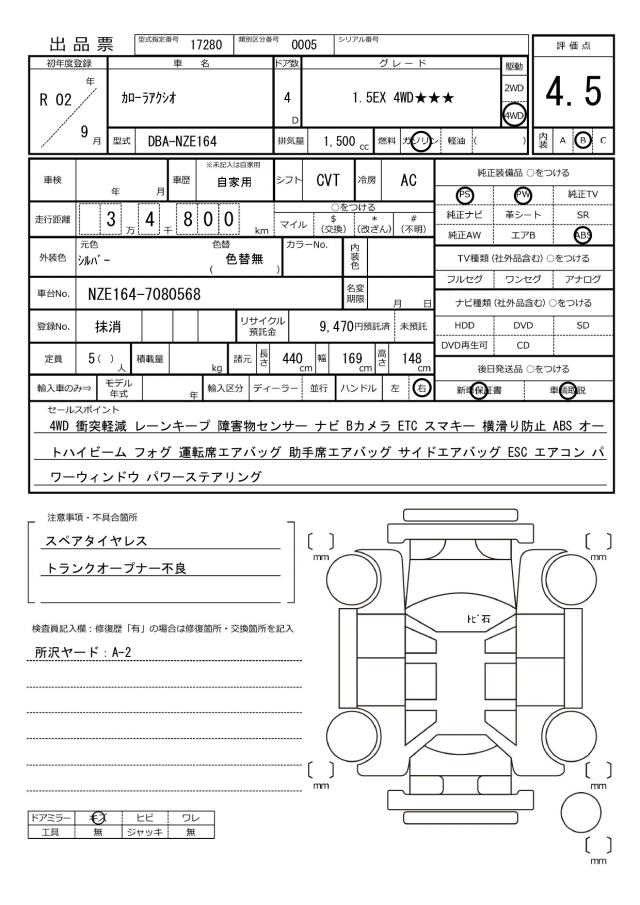 出品票 型式指定番号 17280 類別区分番号 0005 シリアル番号
評価点
初年度登録 車名 ドア数 グレード 駆動
R 02 年 9 月 カローラアクシオ 4 D 1.5EX 4WD★★★ 2WD 4WD 4.5
型式 DBA-NZE164 排気量 1,500 cc 燃料 ガソリン 軽油 ( ) 内装 A B C
車検 年 月 車歴 ※未記入は自家用 自家用 シフト CVT 冷房 AC
純正装備品 ○をつける
PS PW 純正TV
純正ナビ 革シート SR
純正AW エアB ABS
走行距離 3 万 4 千 8 0 0 km ○をつける
マイル $ (交換) * (改ざん) # (不明)
外装色 元色 シルバー 色替 ( 色替無 ) カラーNo. 内装色
TV種類 (社外品含む) ○をつける
フルセグ ワンセグ アナログ
車台No. NZE164-7080568 名変期限 月 日
ナビ種類 (社外品含む) ○をつける
HDD DVD SD
DVD再生可 CD
登録No. 抹消 リサイクル預託金 9,470円預託済 未預託
定員 5 ( ) 人 積載量 kg 諸元 長さ 440 cm 幅 169 cm 高さ 148 cm
後日発送品 ○をつける
新車保証書 車輌取説
輸入車のみ⇒ モデル年式 年 輸入区分 ディーラー 並行 ハンドル 左 右
セールスポイント
4WD 衝突軽減 レーンキープ 障害物センサー ナビ Bカメラ ETC スマキー 横滑り防止 ABS オー
トハイビーム フォグ 運転席エアバッグ 助手席エアバッグ サイドエアバッグ ESC エアコン パ
ワーウィンドウ パワーステアリング
注意事項・不具合箇所
スペアタイヤレス
トランクオープナー不良
検査員記入欄：修復歴「有」の場合は修復箇所・交換箇所を記入
所沢ヤード：A-2
〔 〕 mm
〔 〕 mm
トビ石
〔 〕 mm
〔 〕 mm
〔 〕 mm
ドアミラー キズ ヒビ ワレ
工具 無 ジャッキ 無